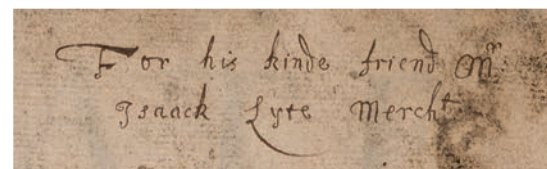 For his kinde friend Mr
Isaack Lyte Mercht